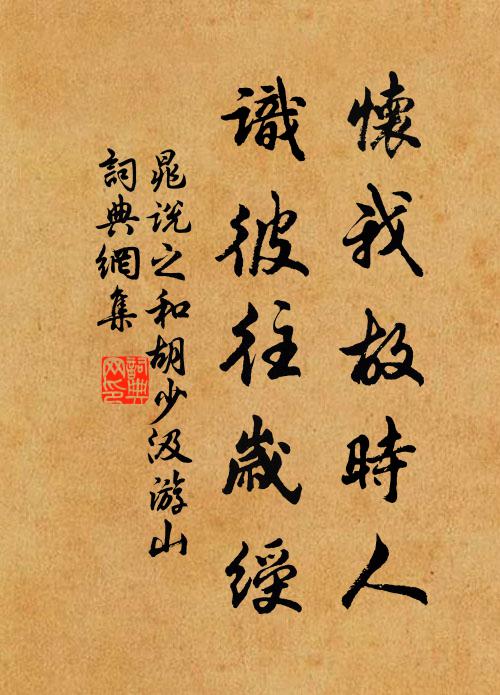 懷我故時人
識彼往歲綬
晁说之和胡少汲游山
詞典網集
詞典網印